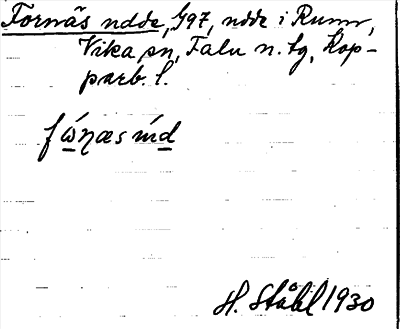 Tornäs udde, G97, udde i Runn,
Vika sn, Falu n. tg, Kop-
parb. l.
fὼηæs ńd
H. Ståhl 1930